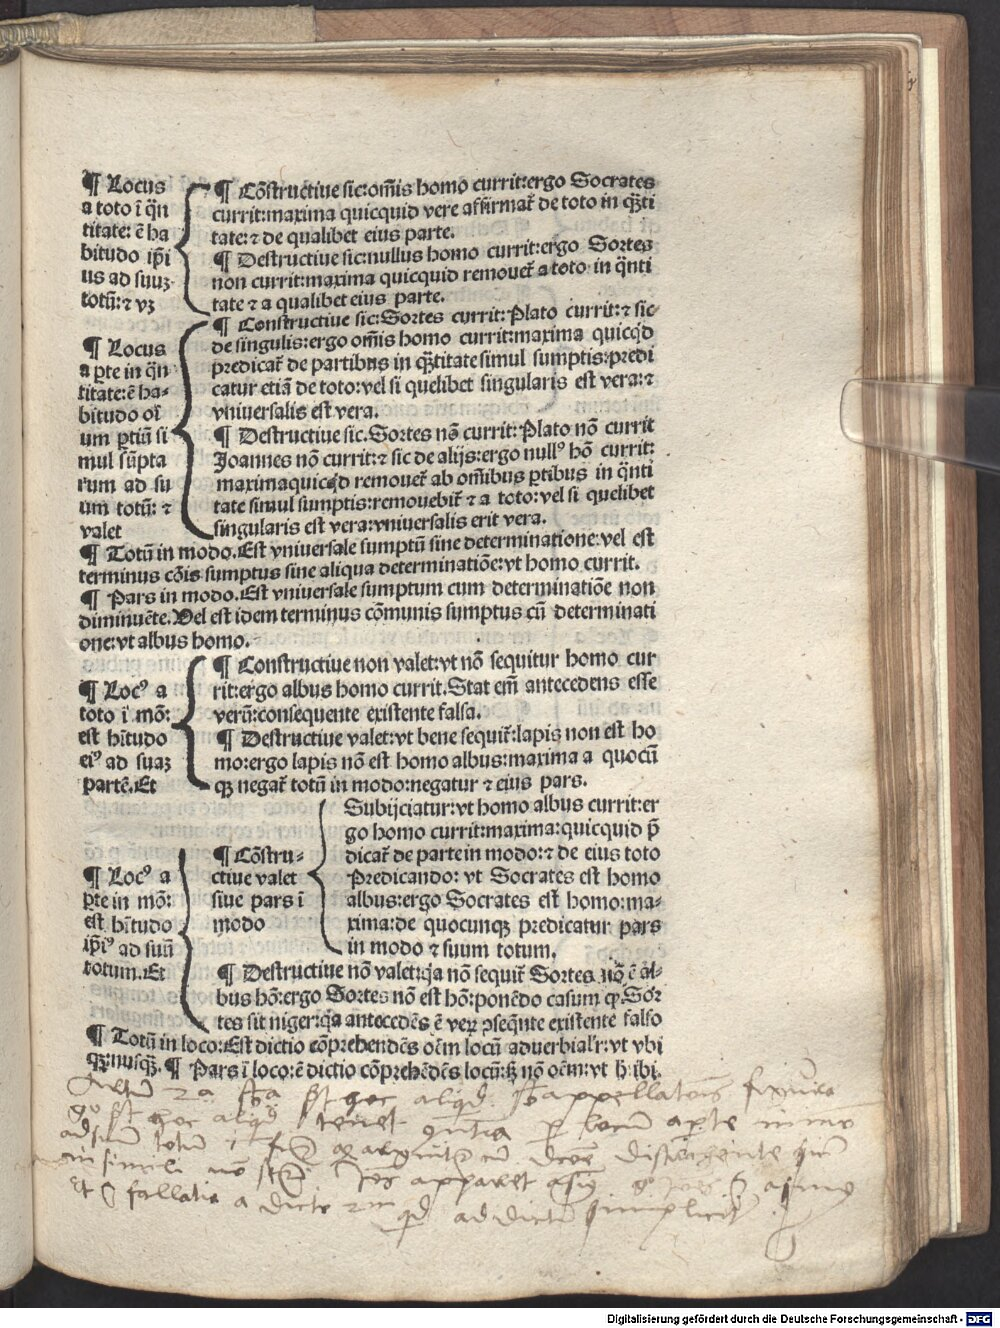 ¶ Locus
a toto ī q̄n
titate: ē ha
bitudo ip̄i
us ad suuꝫ
totū: ⁊ vꝫ
¶ Cōstructiue sic:om̄is homo currit:ergo Socrates
currit:maxima quicquid vere affirmat̄ de toto in q̄ti
tate: ⁊ de qualibet eius parte.
¶ Destructiue sic:nullus homo currit:ergo Sortes
non currit:maxima quicquid remouet̄ a toto in q̄nti
tate ⁊ a qualibet eius parte.
¶ Locus
a ꝑte in q̄n
titate: ē ha-
bitudo oī
um ꝑtiū si
mul sūpta
rum ad su
um totū: ⁊
valet
¶ Constructiue sic:Sortes currit:Plato currit: ⁊ sic
de singulis:ergo om̄is homo currit:maxima quicq̇d
predicat̄ de partibus in q̄titate simul sumptis:predi
catur etiā de toto:vel si quelibet singularis est vera: ⁊
vniuersalis est vera.
¶ Destructiue sic.Sortes nō currit:Plato nō currit
Joannes nō currit: ⁊ sic de alijs:ergo nullꝰ hō currit:
maxima quicq̇d remouet̄ ab om̄ibus ꝑtibus in q̄nti
tate simul sumptis:remouebit̄ ⁊ a toto:vel si quelibet
singularis est vera:vniuersalis erit vera.
¶ Totū in modo.Est vniuersale sumptū sine determinatione:vel est
terminus cōis sumptus sine aliqua determinatiōe:vt homo currit.
¶ Pars in modo.Est vniuersale sumptum cum determinatiōe non
diminuēte.Vel est idem terminus cōmunis sumptus cū determinati
one:vt albus homo.
¶ Locꝰ a
toto ī mō:
est hītudo
eiꝰ ad suaꝫ
partē.Et
¶ Constructiue non valet:vt nō sequitur homo cur
rit:ergo albus homo currit.Stat em̄ antecedens esse
verū:consequente existente falsa.
¶ Destructiue valet:vt bene sequit̄:lapis non est ho
mo:ergo lapis nō est homo albus:maxima a quocū
qꝫ negat̄ totū in modo:negatur ⁊ eius pars.
¶ Locꝰ a
ꝑte in mō:
est hītudo
ip̄iꝰ ad suū
totum.Et
¶ Cōstru-
ctiue valet
siue pars ī
modo
Subijciatur:vt homo albus currit:er
go homo currit:maxima:quicquid p̄
dicat̄ de parte in modo: ⁊ de eius toto
Predicando: vt Socrates est homo
albus:ergo Socrates est homo:ma-
xima:de quocunqꝫ predicatur pars
in modo ⁊ suum totum.
¶ Destructiue nō valet:q̇a nō sequit̄ Sortes nō ē al-
bus hō:ergo Sortes nō est hō:ponēdo casum ꝙ Sor
tes sit niger:q̇a antecedēs ē veꝝ ꝯseq̄nte existente falso
¶ Totū in loco:Est dictio cōprehendēs oēm locū aduerbialr̄:vt vbi
qꝫ:nusqꝫ. ¶ Pars ī loco:ē dictio cōprehēdēs locū:sꝫ nō oēm:vt h̄:ibi.
hoc aliq̇d appellatōis
hoc aliq̇d tenet ꝑ locum a ꝑte in mō
ad suum totum distrigente
in simili nō apparet
Et fallatia a dicto ad dictū simplicit̄
Digitalisierung gefördert durch die Deutsche Forschungsgemeinschaft - DFG